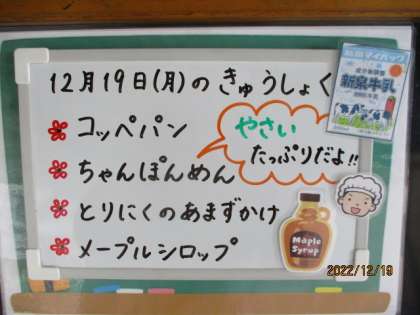 12月19日(月)のきゅうしょく
コッペパン
やさい
たっぷりだよ!!
ちゃんぽんめん
とりにくのあまずかけ
メープルシロップ
新泉牛乳
Maple
Syrup
2022/12/19